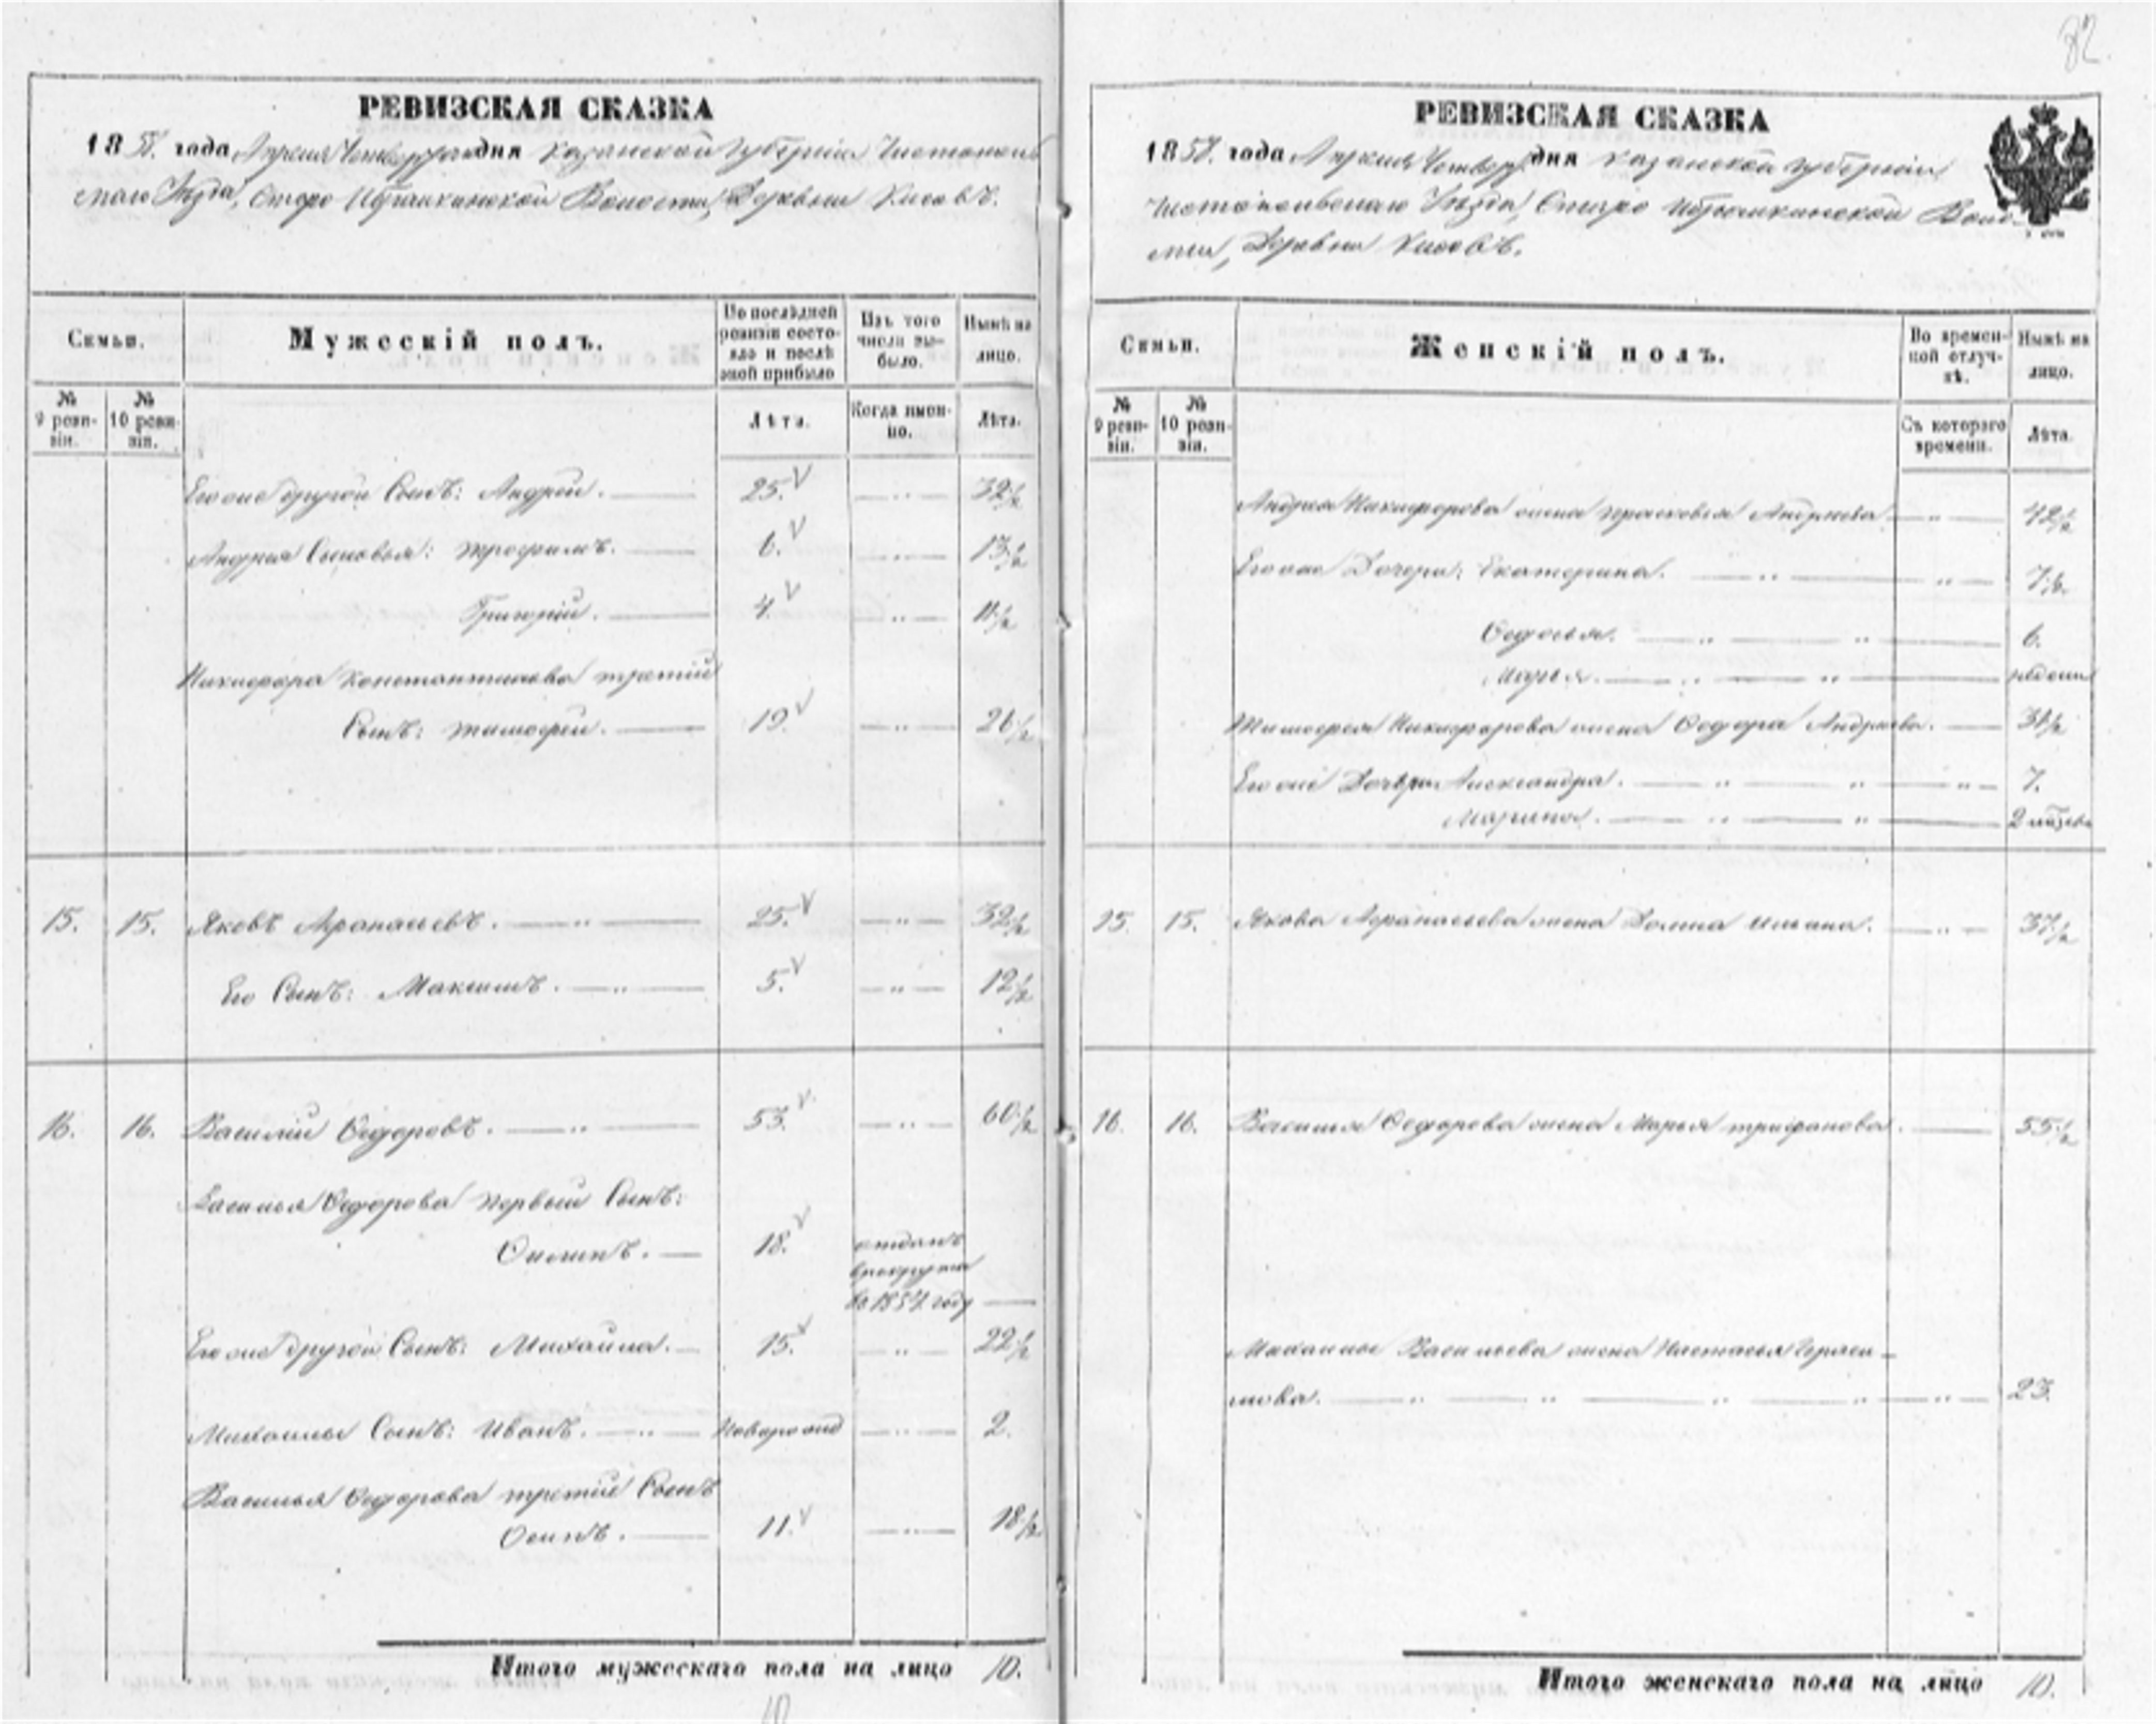 82.
РЕВИЗСКАЯ СКАЗКА
1858. года Апреля дня Казанской Губернии Чистополь
скаго Уѣзда, Старо Ибрайкинской Волости, Деревни Кисовъ.
Семьи.
Мужескій полъ.
По послѣдней ревизіи состояло и послѣ оной прибыло
Изъ того числа выбыло.
Нынѣ на лицо.
№ 9 ревизіи.
№ 10 ревизіи.
Лѣта.
Когда именно.
Лѣта.
Его же другой Сынъ: Андрей. 25. 32½
Андрея Сыновья: Трофимъ. 6. 13½
Григорій. 4. 11½
Никифора Константинова третій
Сынъ: Тимофей. 19. 26½
15. 15. Яковъ Афанасьевъ. 25. 32½
Его Сынъ: Максимъ. 5. 12½
16. 16. Василій Ѳедоровъ. 53. 60½
Василья Ѳедорова первый Сынъ:
Филипъ. 18. отданъ
в рекруты
в 1854 году
Его же другой Сынъ: Михайла. 15. 22½
Михайлы Сынъ: Иванъ. Новорожд 2.
Василья Ѳедорова третій Сынъ
Осипъ. 11. 18½
Итого мужескаго пола на лицо 10.
10
РЕВИЗСКАЯ СКАЗКА
1858. года Апреля дня Казанской Губерніи
Чистопольскаго Уѣзда, Старо Ибрайкинской Воло-
сти, Деревни Кисовъ.
Семьи.
Женскій полъ.
Во временной отлучкѣ.
Нынѣ на лицо.
№ 9 ревизіи.
№ 10 ревизіи.
Съ котораго времени.
Лѣта.
Андрея Никифорова жена Прасковья Андреева 42½
Его же Дочери: Екатерина. 7½.
Ѳедосья. 6.
Марья. недели
Тимофея Никифорова жена Ѳедора Андреева. 31½
Его же Дочери Александра. 7.
Марина. 2 месяца
15. 15. Якова Афанасьева жена Домна Ильина. 37½
16. 16. Василья Ѳедорова жена Марья Трифанова. 55½
Михайлы Васильева жена Настасья Гераси-
мова. 23.
Итого женскаго пола на лицо 10.